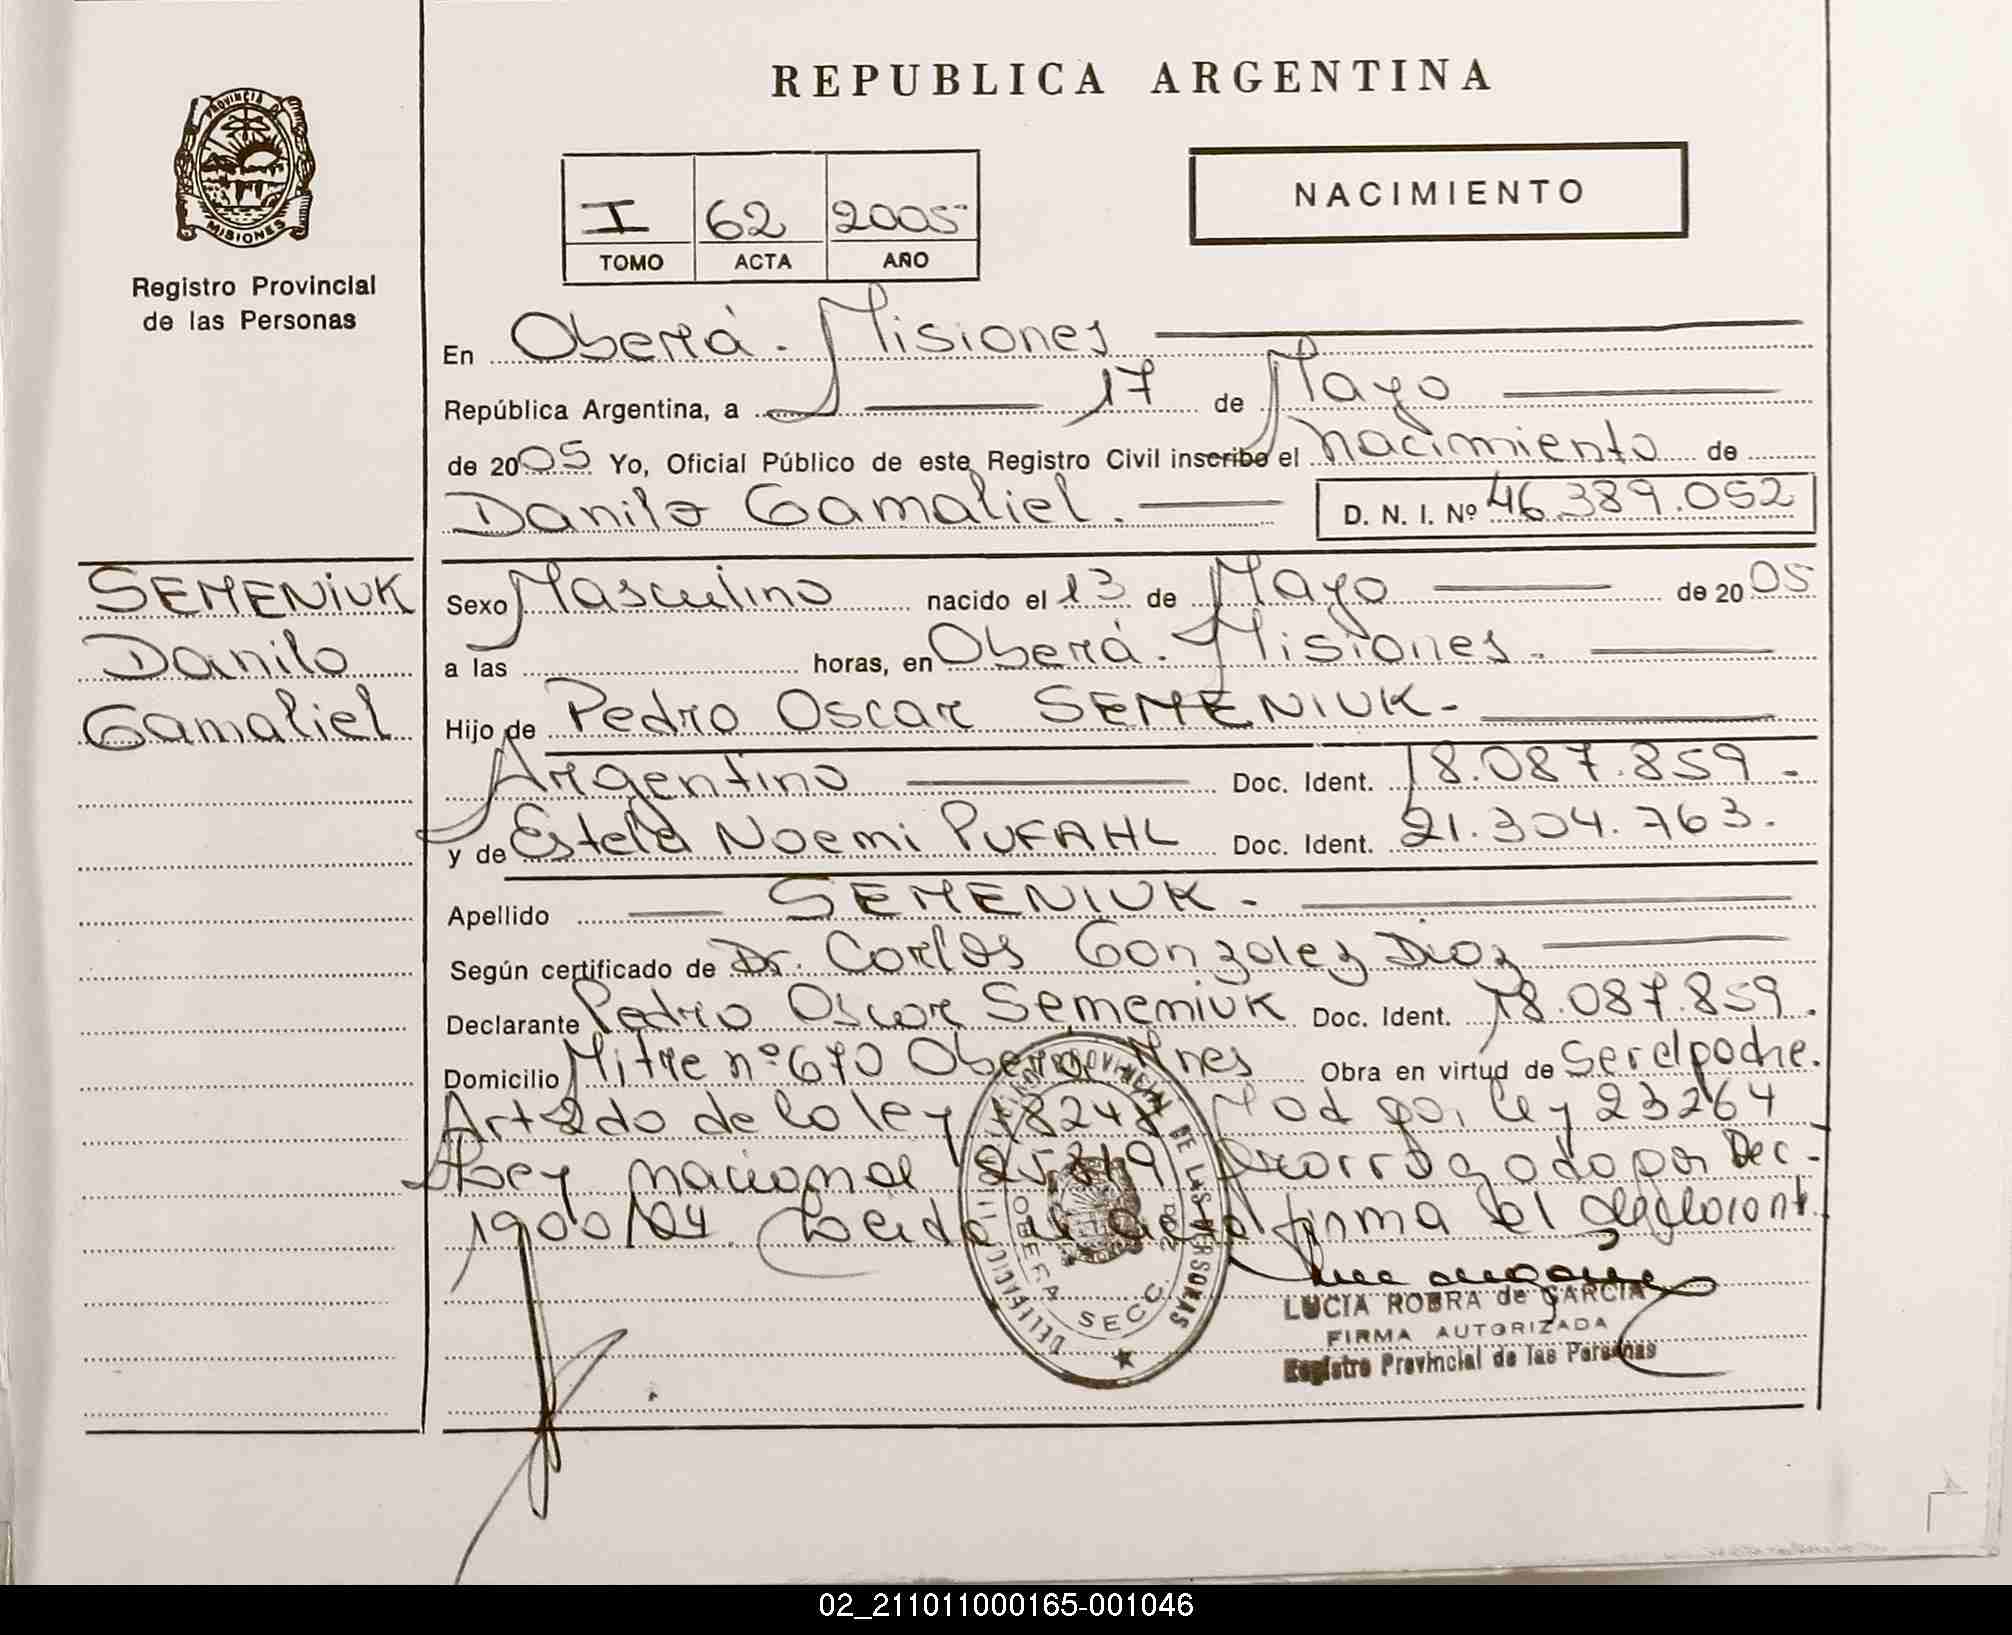 REPUBLICA ARGENTINA
PROVINCIA DE
MISIONES
Registro Provincial
de las Personas
I 62 2005
TOMO ACTA AÑO
NACIMIENTO
En Oberá - Misiones
República Argentina, a 17 de Mayo
de 2005 Yo, Oficial Público de este Registro Civil inscribo el nacimiento de
Danilo Gamaliel. D. N. I. Nº 46.389.052
SEMENIUK
Danilo
Gamaliel
Sexo Masculino nacido el 13 de Mayo de 2005
a las horas, en Oberá - Misiones.
Hijo de Pedro Oscar SEMENIUK-
Argentino Doc. Ident. 18.087.859-
y de Estela Noemi PUFAHL Doc. Ident. 21.304.763.
Apellido SEMENIUK-
Según certificado de Dr. Carlos Gonzalez Diaz
Declarante Pedro Oscar Semeniuk Doc. Ident. 18.087.859.
Domicilio Mitre nº 670 Oberá Mnes Obra en virtud de Ser el padre.
Art 2do de la ley 18248 Mod por ley 23264
Ley nacional 25819 Prorrogado por Dec-
1900/04. Leida el acta firma el declarante
DE LAS PERSONAS
OBERA SECC.
LUCIA ROBRA de GARCIA
FIRMA AUTORIZADA
Registro Provincial de las Personas
02_211011000165-001046